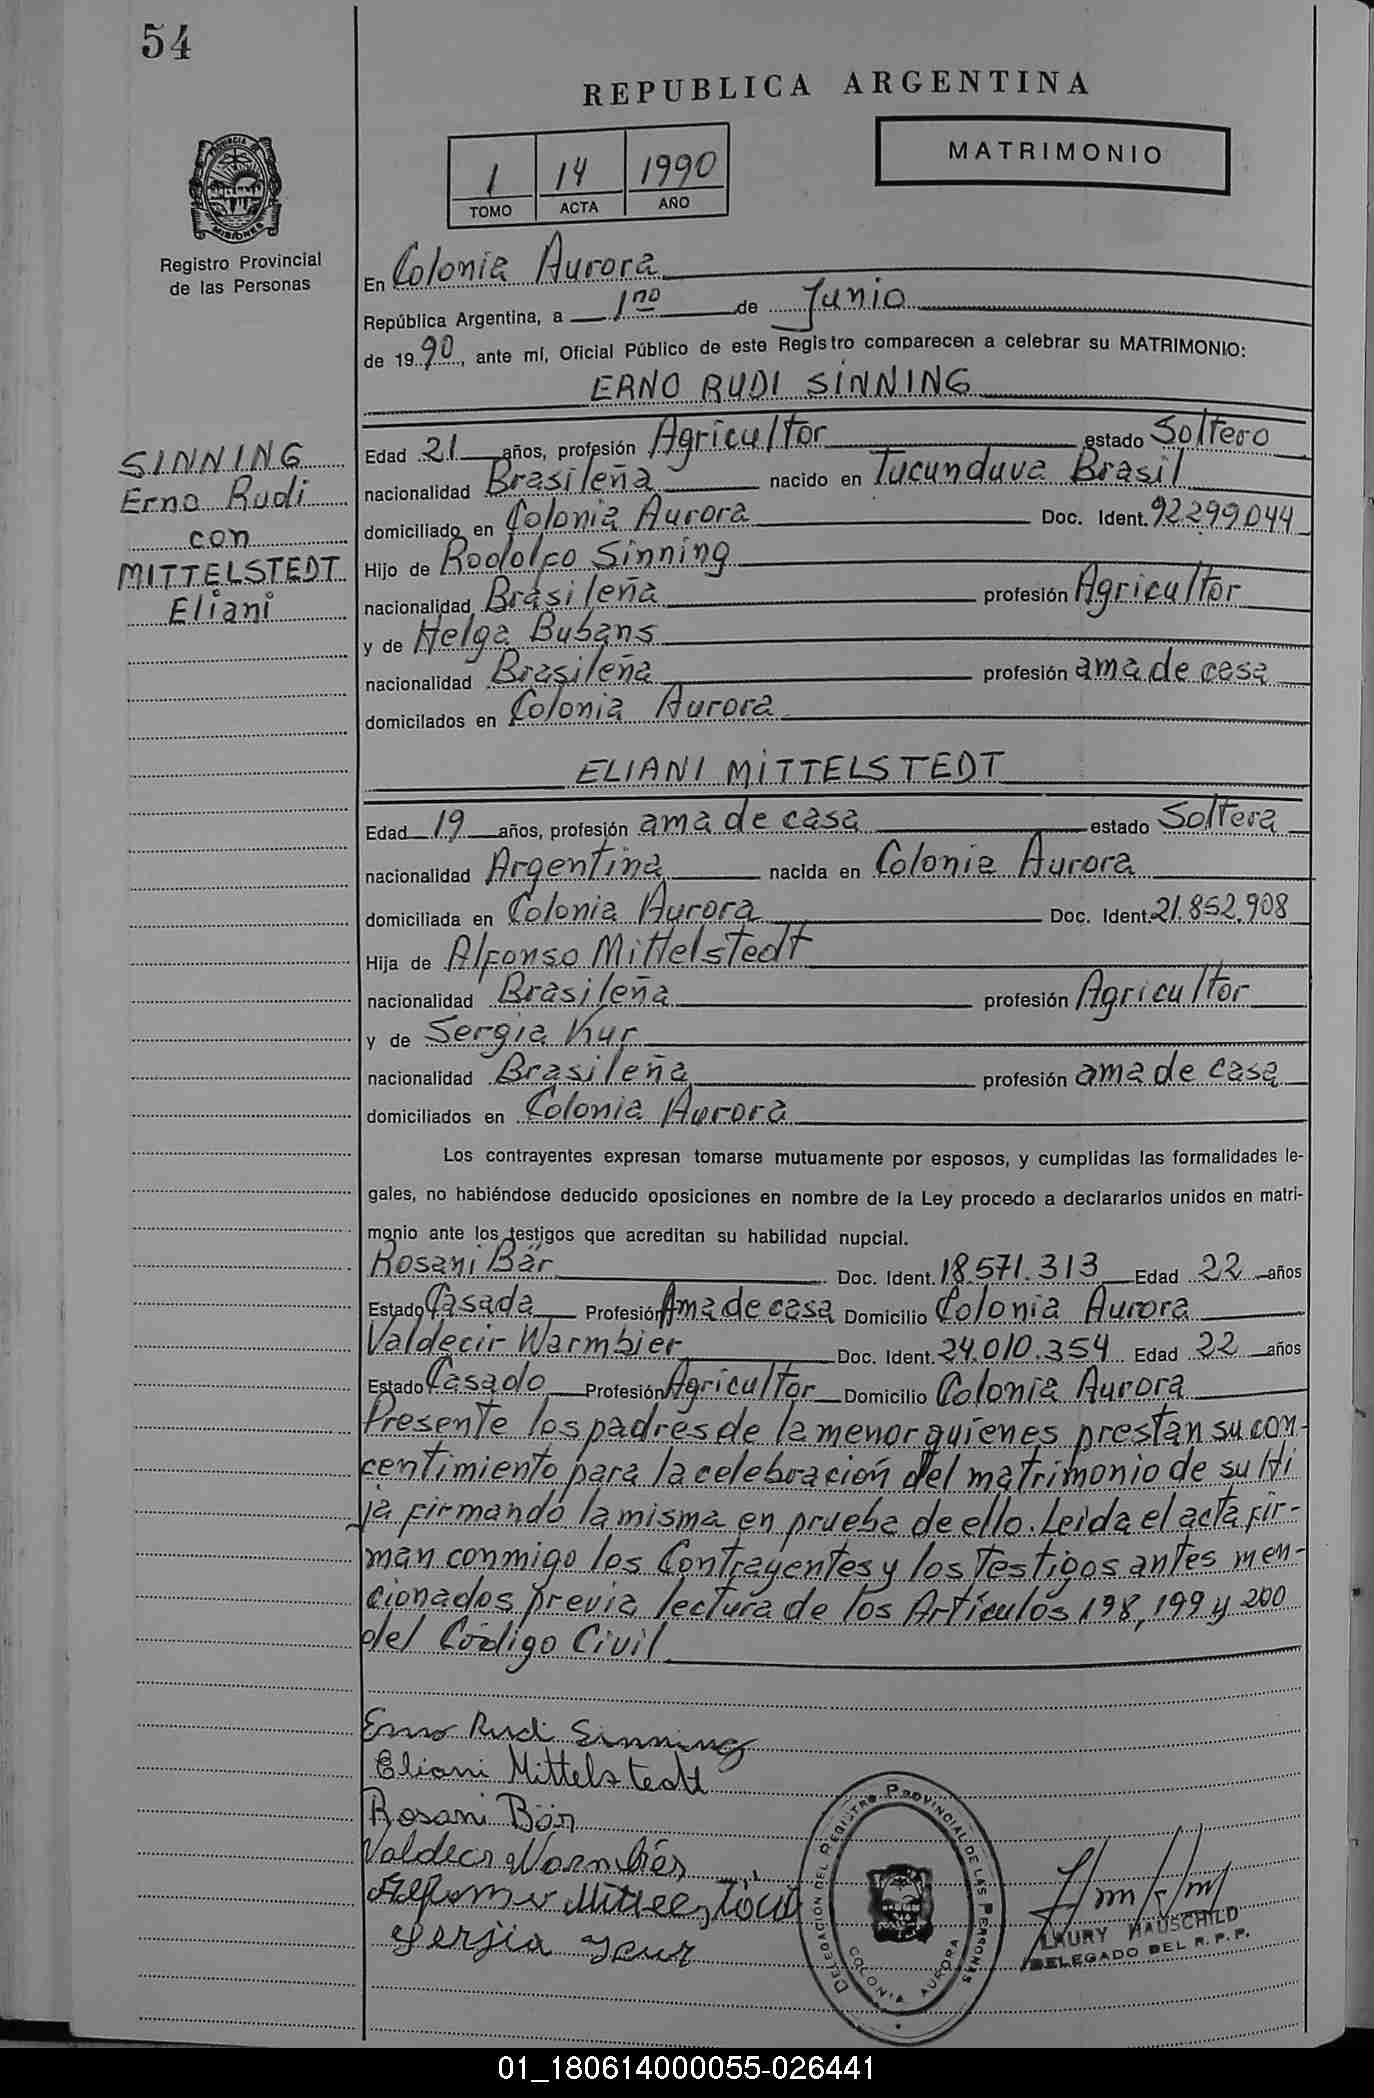 54
REPUBLICA ARGENTINA
MATRIMONIO
1 14 1990
TOMO ACTA AÑO
PROVINCIA DE MISIONES
Registro Provincial
de las Personas
En Colonia Aurora
República Argentina, a 1ro de Junio
de 1990, ante mí, Oficial Público de este Registro comparecen a celebrar su MATRIMONIO:
ERNO RUDI SINNING
SINNING
Erno Rudi
con
MITTELSTEDT
Eliani
Edad 21 años, profesión Agricultor estado Soltero
nacionalidad Brasileña nacido en Tucunduva Brasil
domiciliado en Colonia Aurora Doc. Ident. 92299044
Hijo de Rodolfo Sinning
nacionalidad Brasileña profesión Agricultor
y de Helga Bubans
nacionalidad Brasileña profesión ama de casa
domicilados en Colonia Aurora
ELIANI MITTELSTEDT
Edad 19 años, profesión ama de casa estado Soltera
nacionalidad Argentina nacida en Colonia Aurora
domiciliada en Colonia Aurora Doc. Ident. 21.852.908
Hija de Alfonso Mittelstedt
nacionalidad Brasileña profesión Agricultor
y de Sergia Kur
nacionalidad Brasileña profesión ama de casa
domiciliados en Colonia Aurora
Los contrayentes expresan tomarse mutuamente por esposos, y cumplidas las formalidades le-
gales, no habiéndose deducido oposiciones en nombre de la Ley procedo a declararlos unidos en matri-
monio ante los testigos que acreditan su habilidad nupcial.
Rosani Bär Doc. Ident. 18.571.313 Edad 22 años
Estado Casada Profesión Ama de casa Domicilio Colonia Aurora
Valdecir Warmbier Doc. Ident. 24.010.354 Edad 22 años
Estado Casado Profesión Agricultor Domicilio Colonia Aurora
Presente los padres de la menor quienes prestan su con-
centimiento para la celebracion del matrimonio de su Hi
ja firmando la misma en prueba de ello. Leida el acta fir-
man conmigo los Contrayentes y los Testigos antes men-
cionados previa lectura de los Artículos 198, 199 y 200
del Código Civil
Erno Rudi Sinning
Eliani Mittelstedt
Rosani Bär
Valdecir Warmbier
Sergia Kur
DELEGACION DEL REGISTRO PROVINCIAL DE LAS PERSONAS
COLONIA AURORA
LAURY HAUSCHILD
DELEGADO DEL R.P.P.
01_180614000055-026441